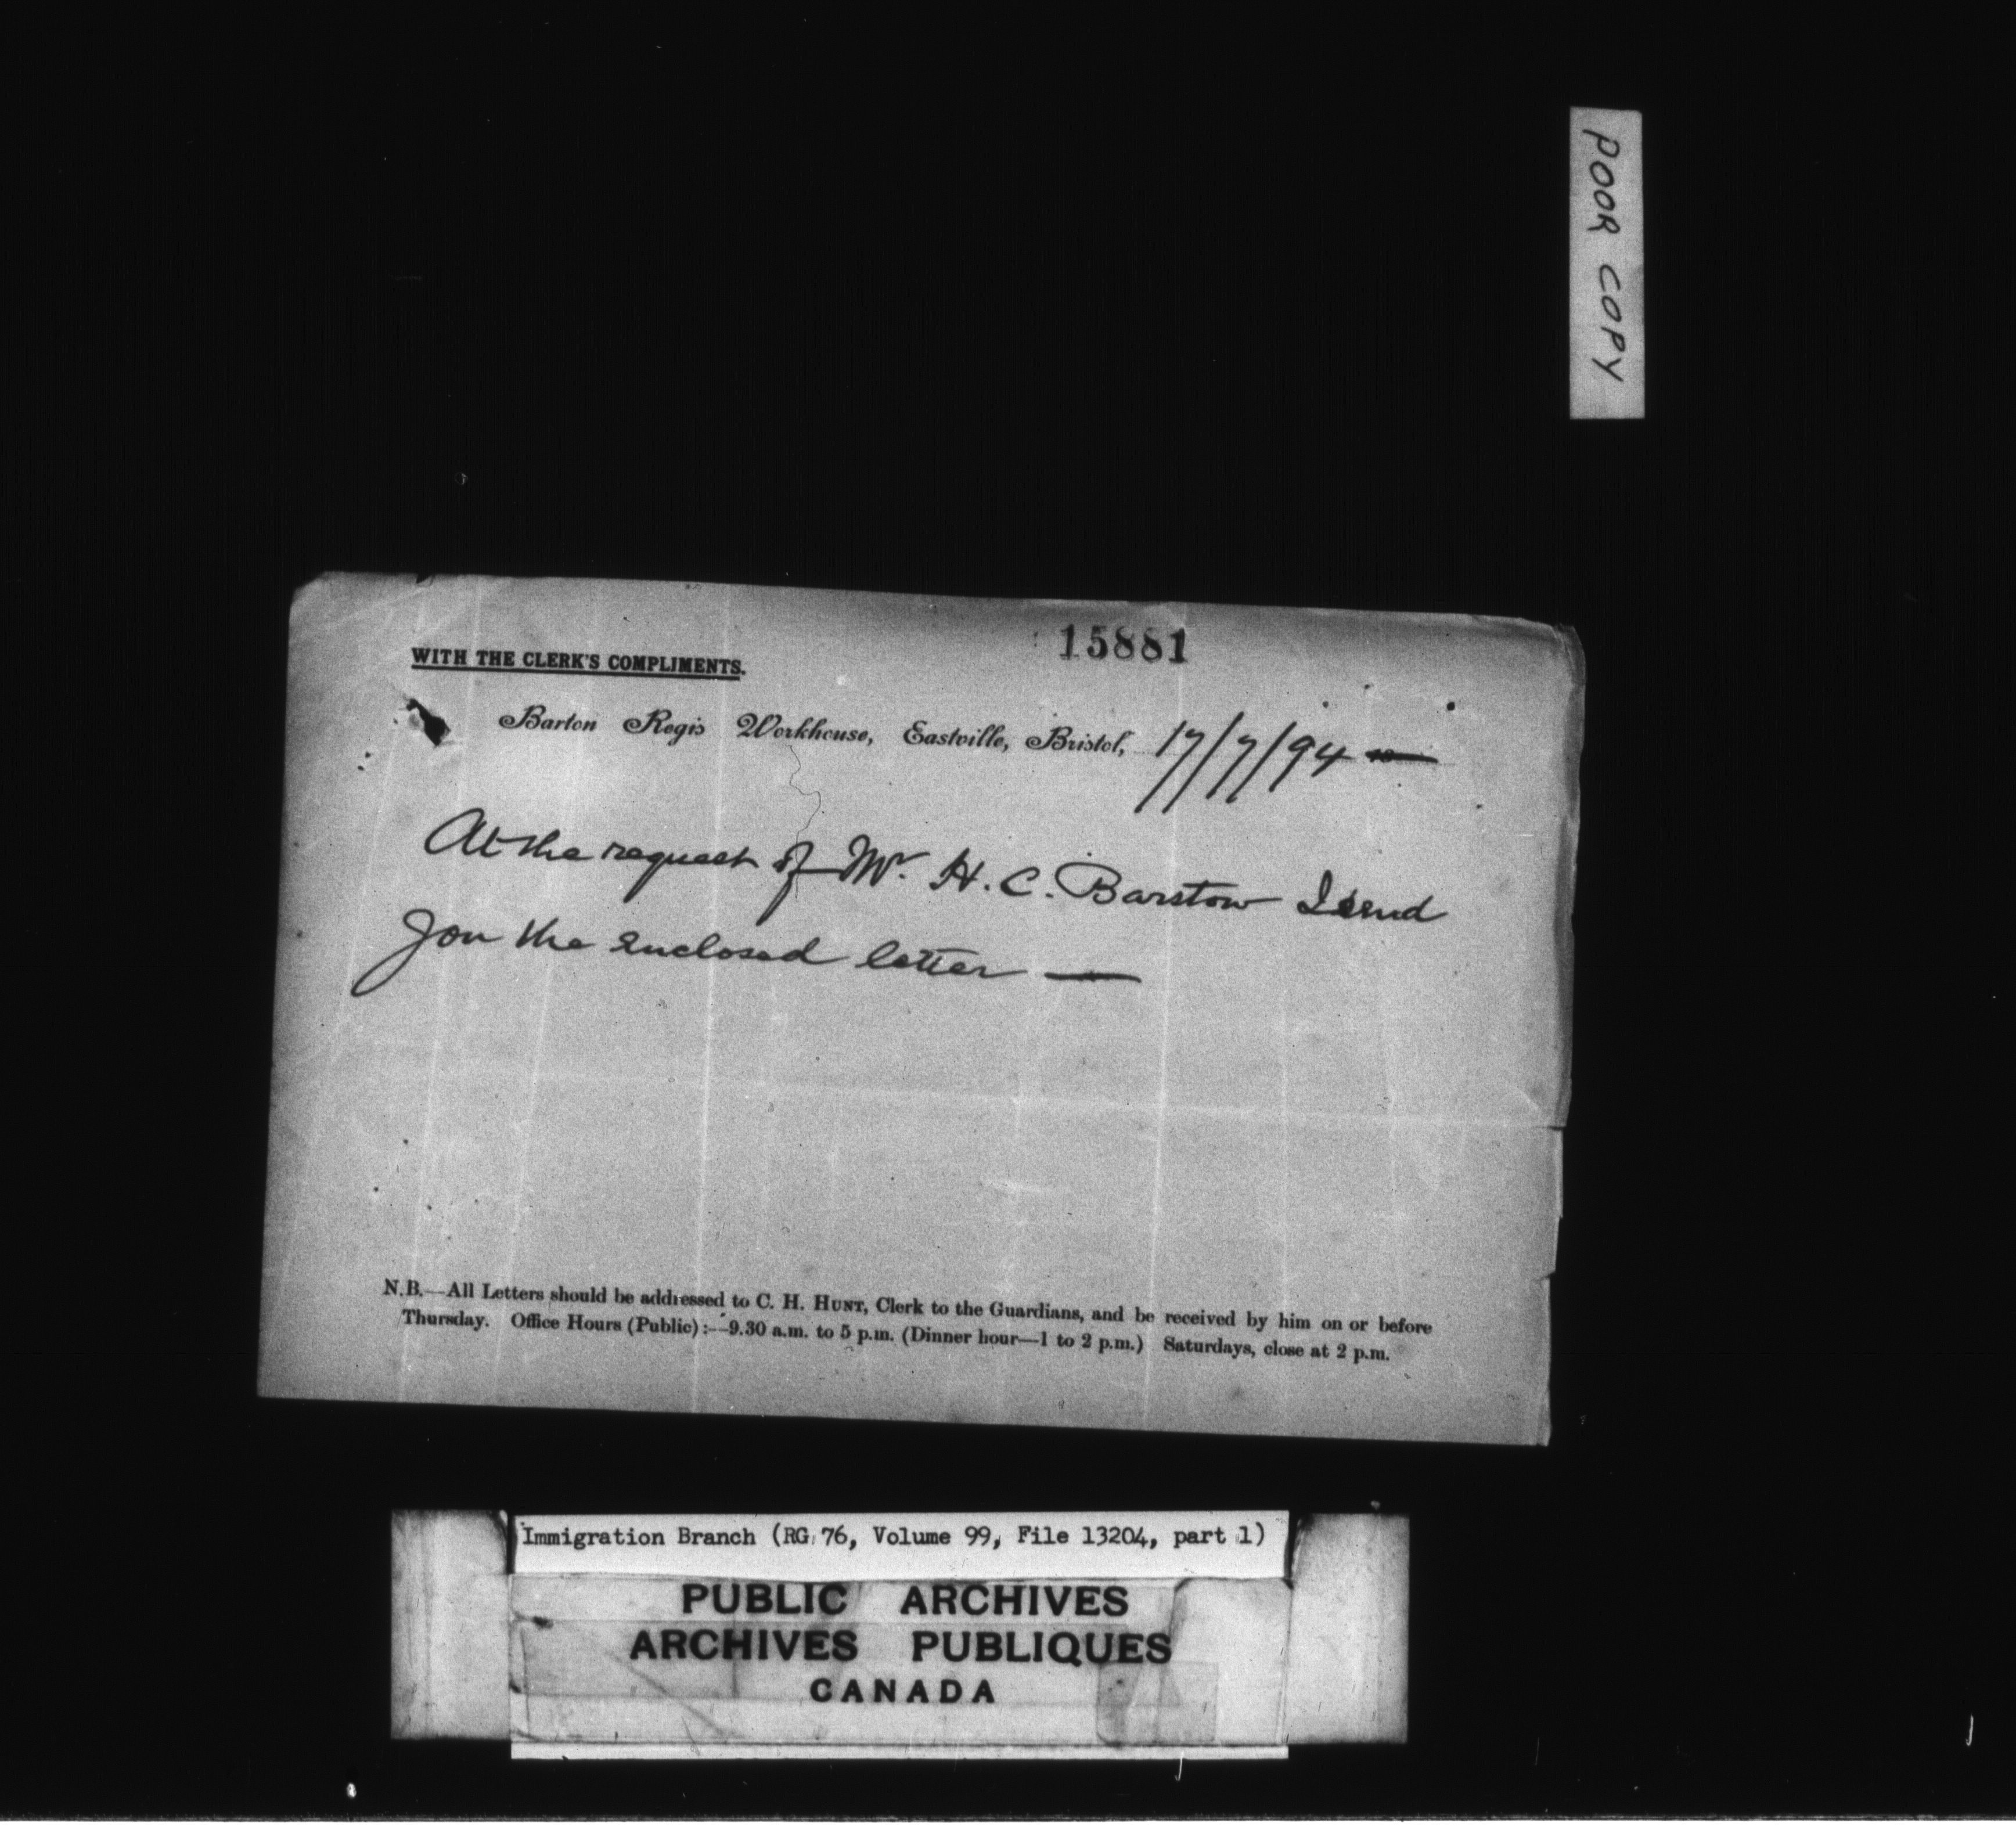 POOR COPY
15881
WITH THE CLERK'S COMPLIMENTS.
Barton Regis Workhouse, Eastville, Bristol, 17/7/94
At the request of Mr. H. C. Barstow I send
you the enclosed letter —
N.B.—All Letters should be addressed to C. H. HUNT, Clerk to the Guardians, and be received by him on or before
Thursday. Office Hours (Public):—9.30 a.m. to 5 p.m. (Dinner hour—1 to 2 p.m.) Saturdays, close at 2 p.m.
Immigration Branch (RG 76, Volume 99, File 13204, part 1)
PUBLIC ARCHIVES
ARCHIVES PUBLIQUES
CANADA